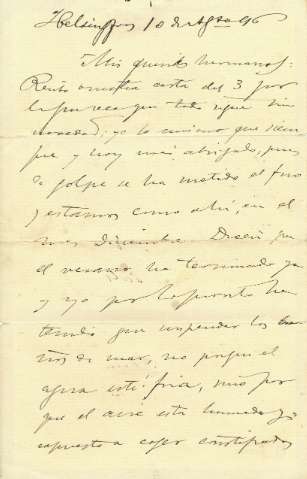 Helsingfors 10 de Agosto 96
Mis queridos hermanos:
Recibo vuestra carta del 3 por
la que veo que todo sigue sin
novedad; yo lo mismo que siem
pre y hoy más abrigado, pues
de golpe se ha metido el frio
y estamos como ahí, en el
mes Diciembre. Dicen que
el verano ha terminado ya
y yo por lo pronto he
tenido que suspender los ba
ños de mar, no porque el
agua esté fria, sino por
que el aire está humedo y
expuesto a coger constipados